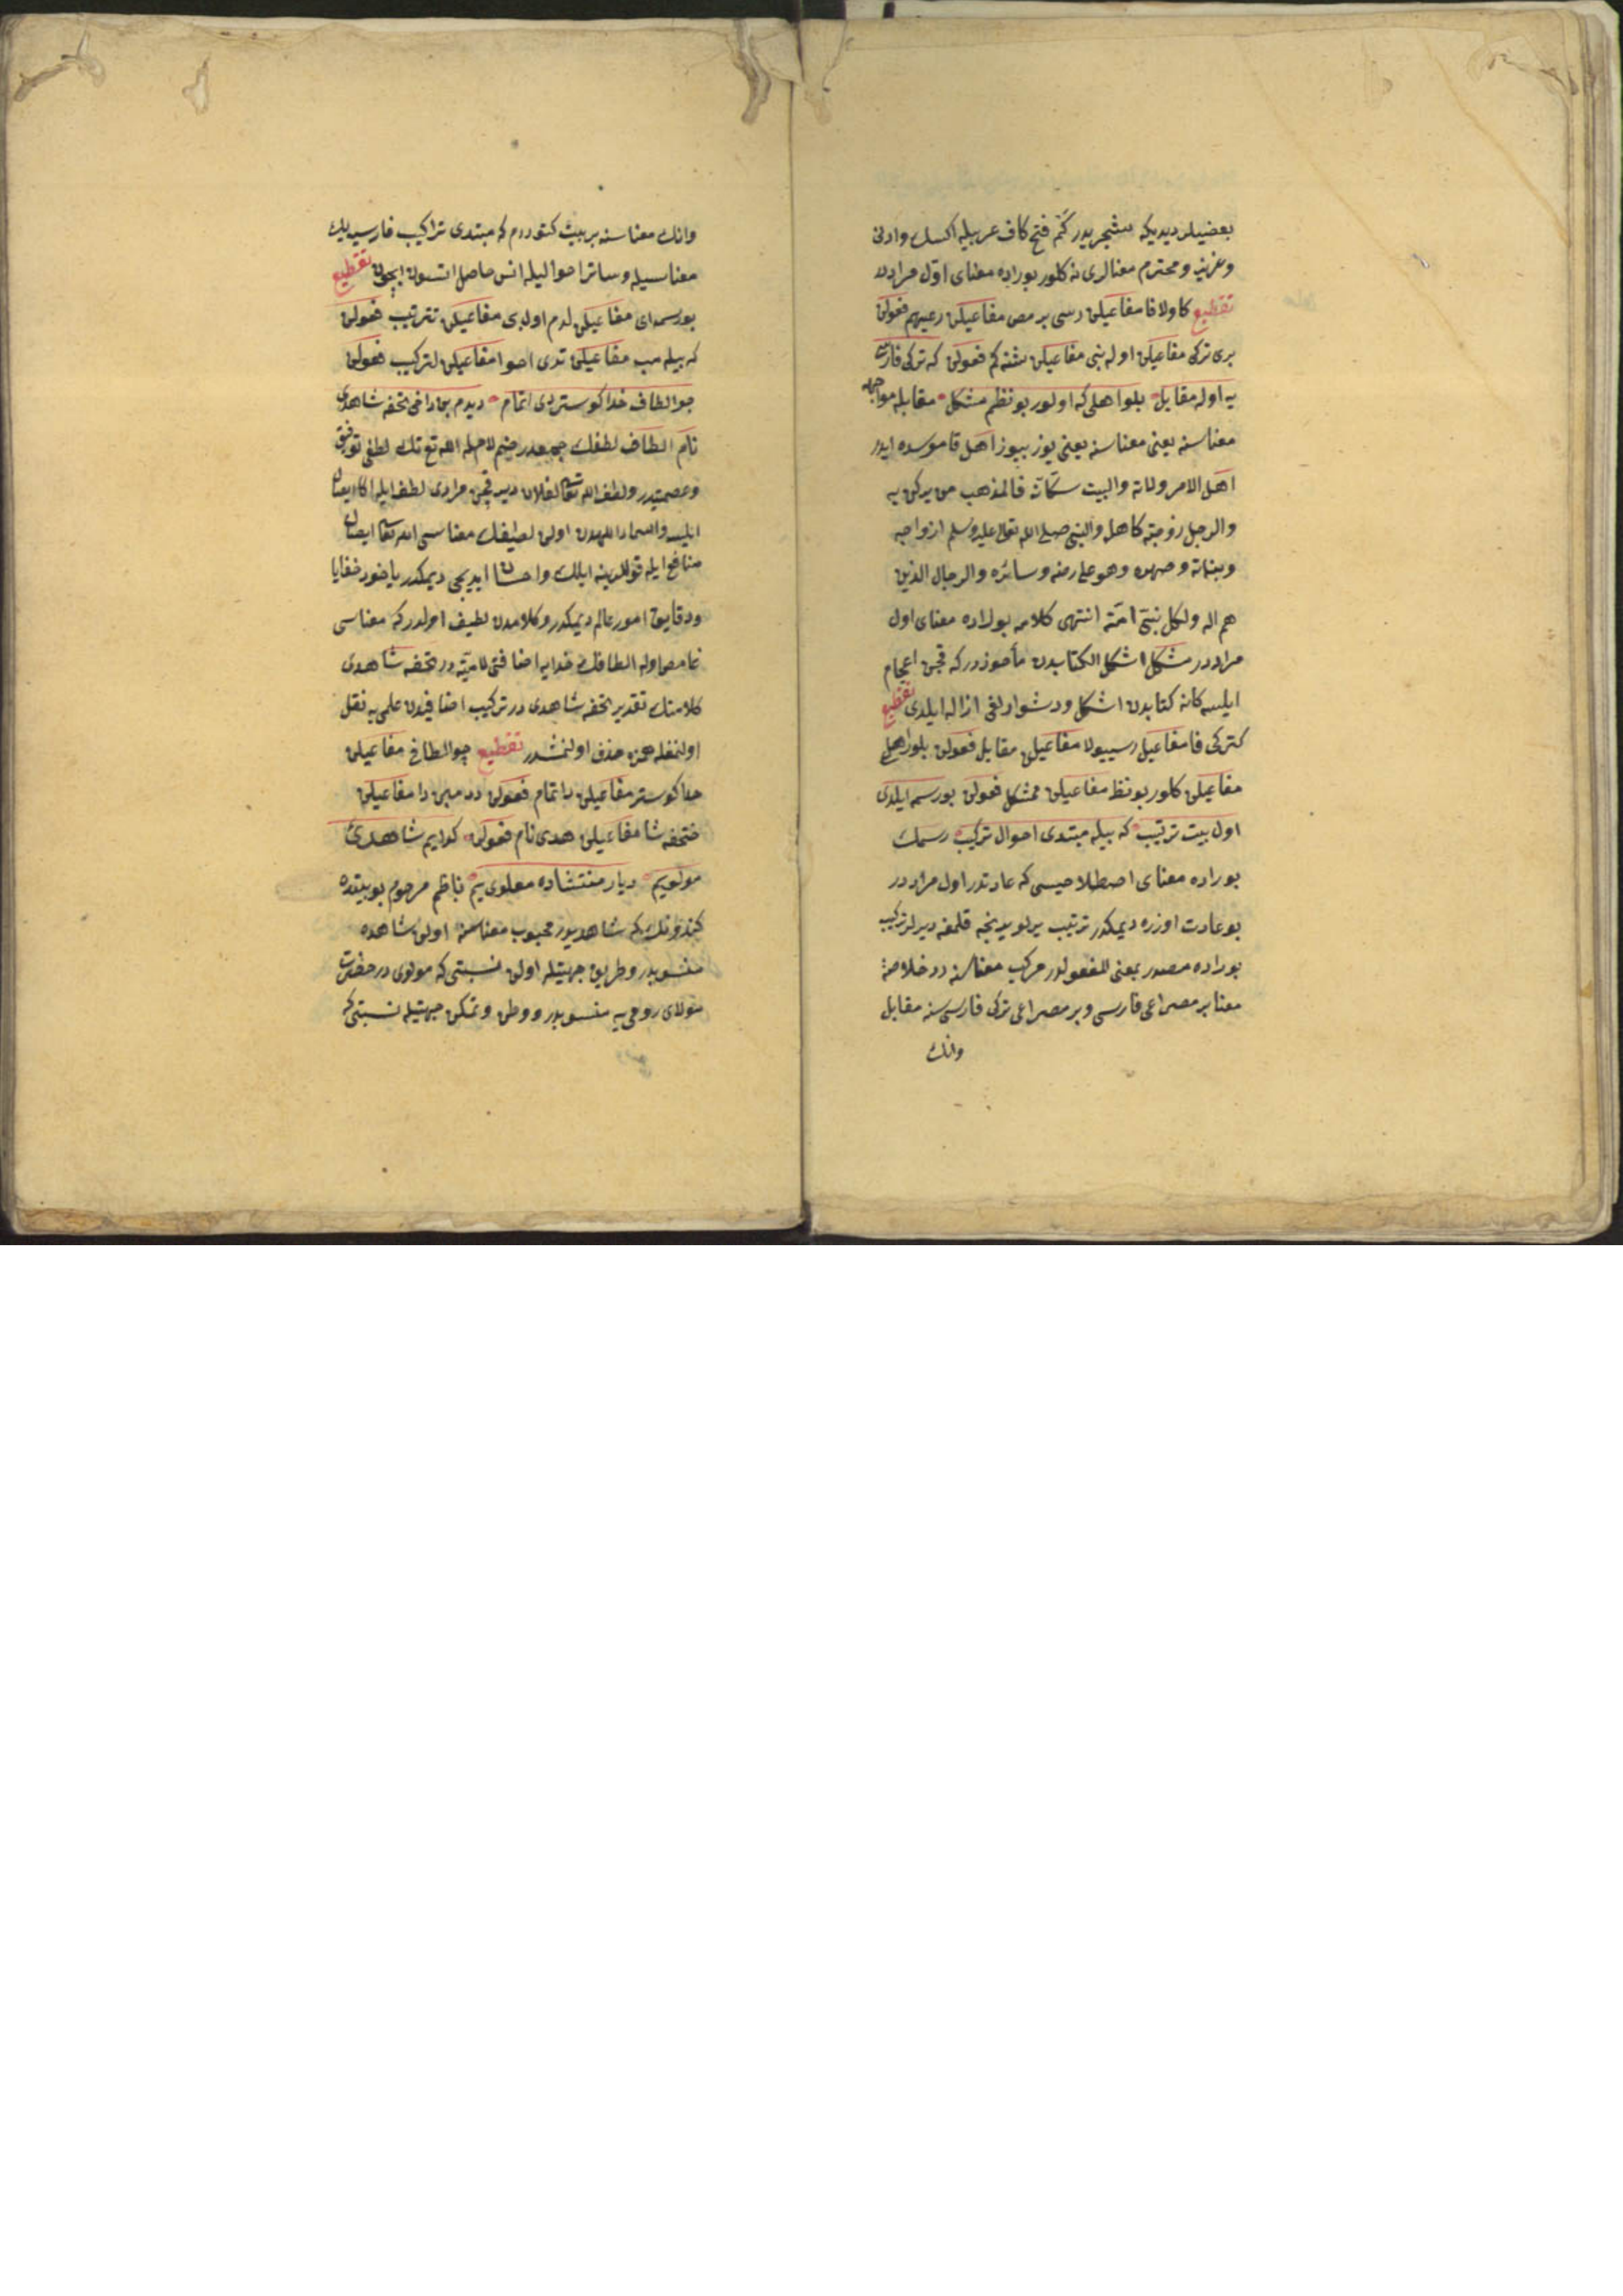 بعضیلر دیدیکه شجریدر کم فتح کاف عربیله اکسك وادنی
وعزیز ومحترم معنالری نه کلور بوراده معنای اوّل مراددر
تقطیع کاولا فا مفاعیلن رسی بر مص مفاعیلن رعیهم فعولن
بری ترکی مفاعیلن اوله بنی مفاعیلن شنه کم فعولن که ترکی فارسی
یه اوله مقابل بلوا هلی که اولور بو نظم مشکل مقابله مواجهه
معناسنه یعنی معناسنه یعنی یوز بیوز اهل قاموسده ایدر
اهل الامر ولاته والبیت سکّانه فالمذهب من یدین به
والرجل زوجته کاهله والنبی صلی الله تعالی علیه وسلم ازواجه
وبناته وصهره وهو علی رضه وسائره والرجال الذین
هم اله ولکل نبیّ امّته انتهی کلامه بوراده معنای اول
مراددر مشکل اشکل الکتابدن مأخوذدر که قچن اعجام
ایلسه کانه کتابدن اشکل ودشوارلغی ازاله ایلدی تقطیع
کترکی فا مفاعیل رسییولا مفاعیلن مقابل فعولن بلوراهل
مفاعیلن کلور بو نظ مفاعیلن ممشکل فعولن بو رسمه ایلدی
اول بیت ترتیب که بیله مبتدی احوال ترکیب رسمك
بوراده معنای اصطلاحیسی که عادتدر اول مراددر
بو عادت اوزره دیمکدر ترتیب یرلو یرینجه قلمغه دیرلر ترکیب
بوراده مصدر بمعنی المفعولدر مرکب معناسنه در خلاصهٔ
معنا بر مصراعی فارسی وبر مصراعی ترکی فارسی سنه مقابل
وانك
وانك معناسنه بر بیت کتوردم که مبتدی تراکیب فارسیه یك
معناسیله وسائر احوالیله انس حاصل اتسون ایچون تقطیع
بورسمه ای مفاعیلن لدم اولدی مفاعیلن تترتیب فعولن
که بیله مب مفاعیلن تدی احوا مفاعیلن لترکیب فعولن
چو الطاف خدا کوستردی اتمام دیدم بهادافی تحفه شاهدی
نام الطاف لطفك جمعیدر ضم لامله الله تع نك لطفی توفیق
وعصمتیدر ولطف الله تعالی لفلان دیر قچن مرادی لطف ایله اکا ایصال
ایلسه واسماء اللهدن اولن لطیفك معناسی الله تعالی ایصال
منافع ایله قوللرینه ایلك واحسان ایدیجی دیمکدر یاخود خفایا
ودقایق امور عالم دیمکدر وکلامدن لطیف اولدر که معناسی
غامض اوله الطافك خدایه اضافتی لامیّه در تحفه شاهدی
کلامنك تقدیر تحفه شاهدی در ترکیب اضافیدن علمی یه نقل
اولنمغله همزه حذف اولنمشدر تقطیع چو الطافی مفاعیلن
خدا کوستر مفاعیلن دی اتمام فعولن ددم بهی دا مفاعیلن
فتحفه شا مفاعیلن هدی نام فعولن کدایم شاهدی
مولویم دیار منتشاده معلوی یم ناظم مرحوم بو بیتده
کندونك که شاهدیدر محبوب معناسنه اولن شاهده
منسوبدر وطریق جهتیله اولن نسبتی که مولوی در حضرت
مولای رومی یه منسوبدر ووطن وتمکن جهتیله نسبتی که